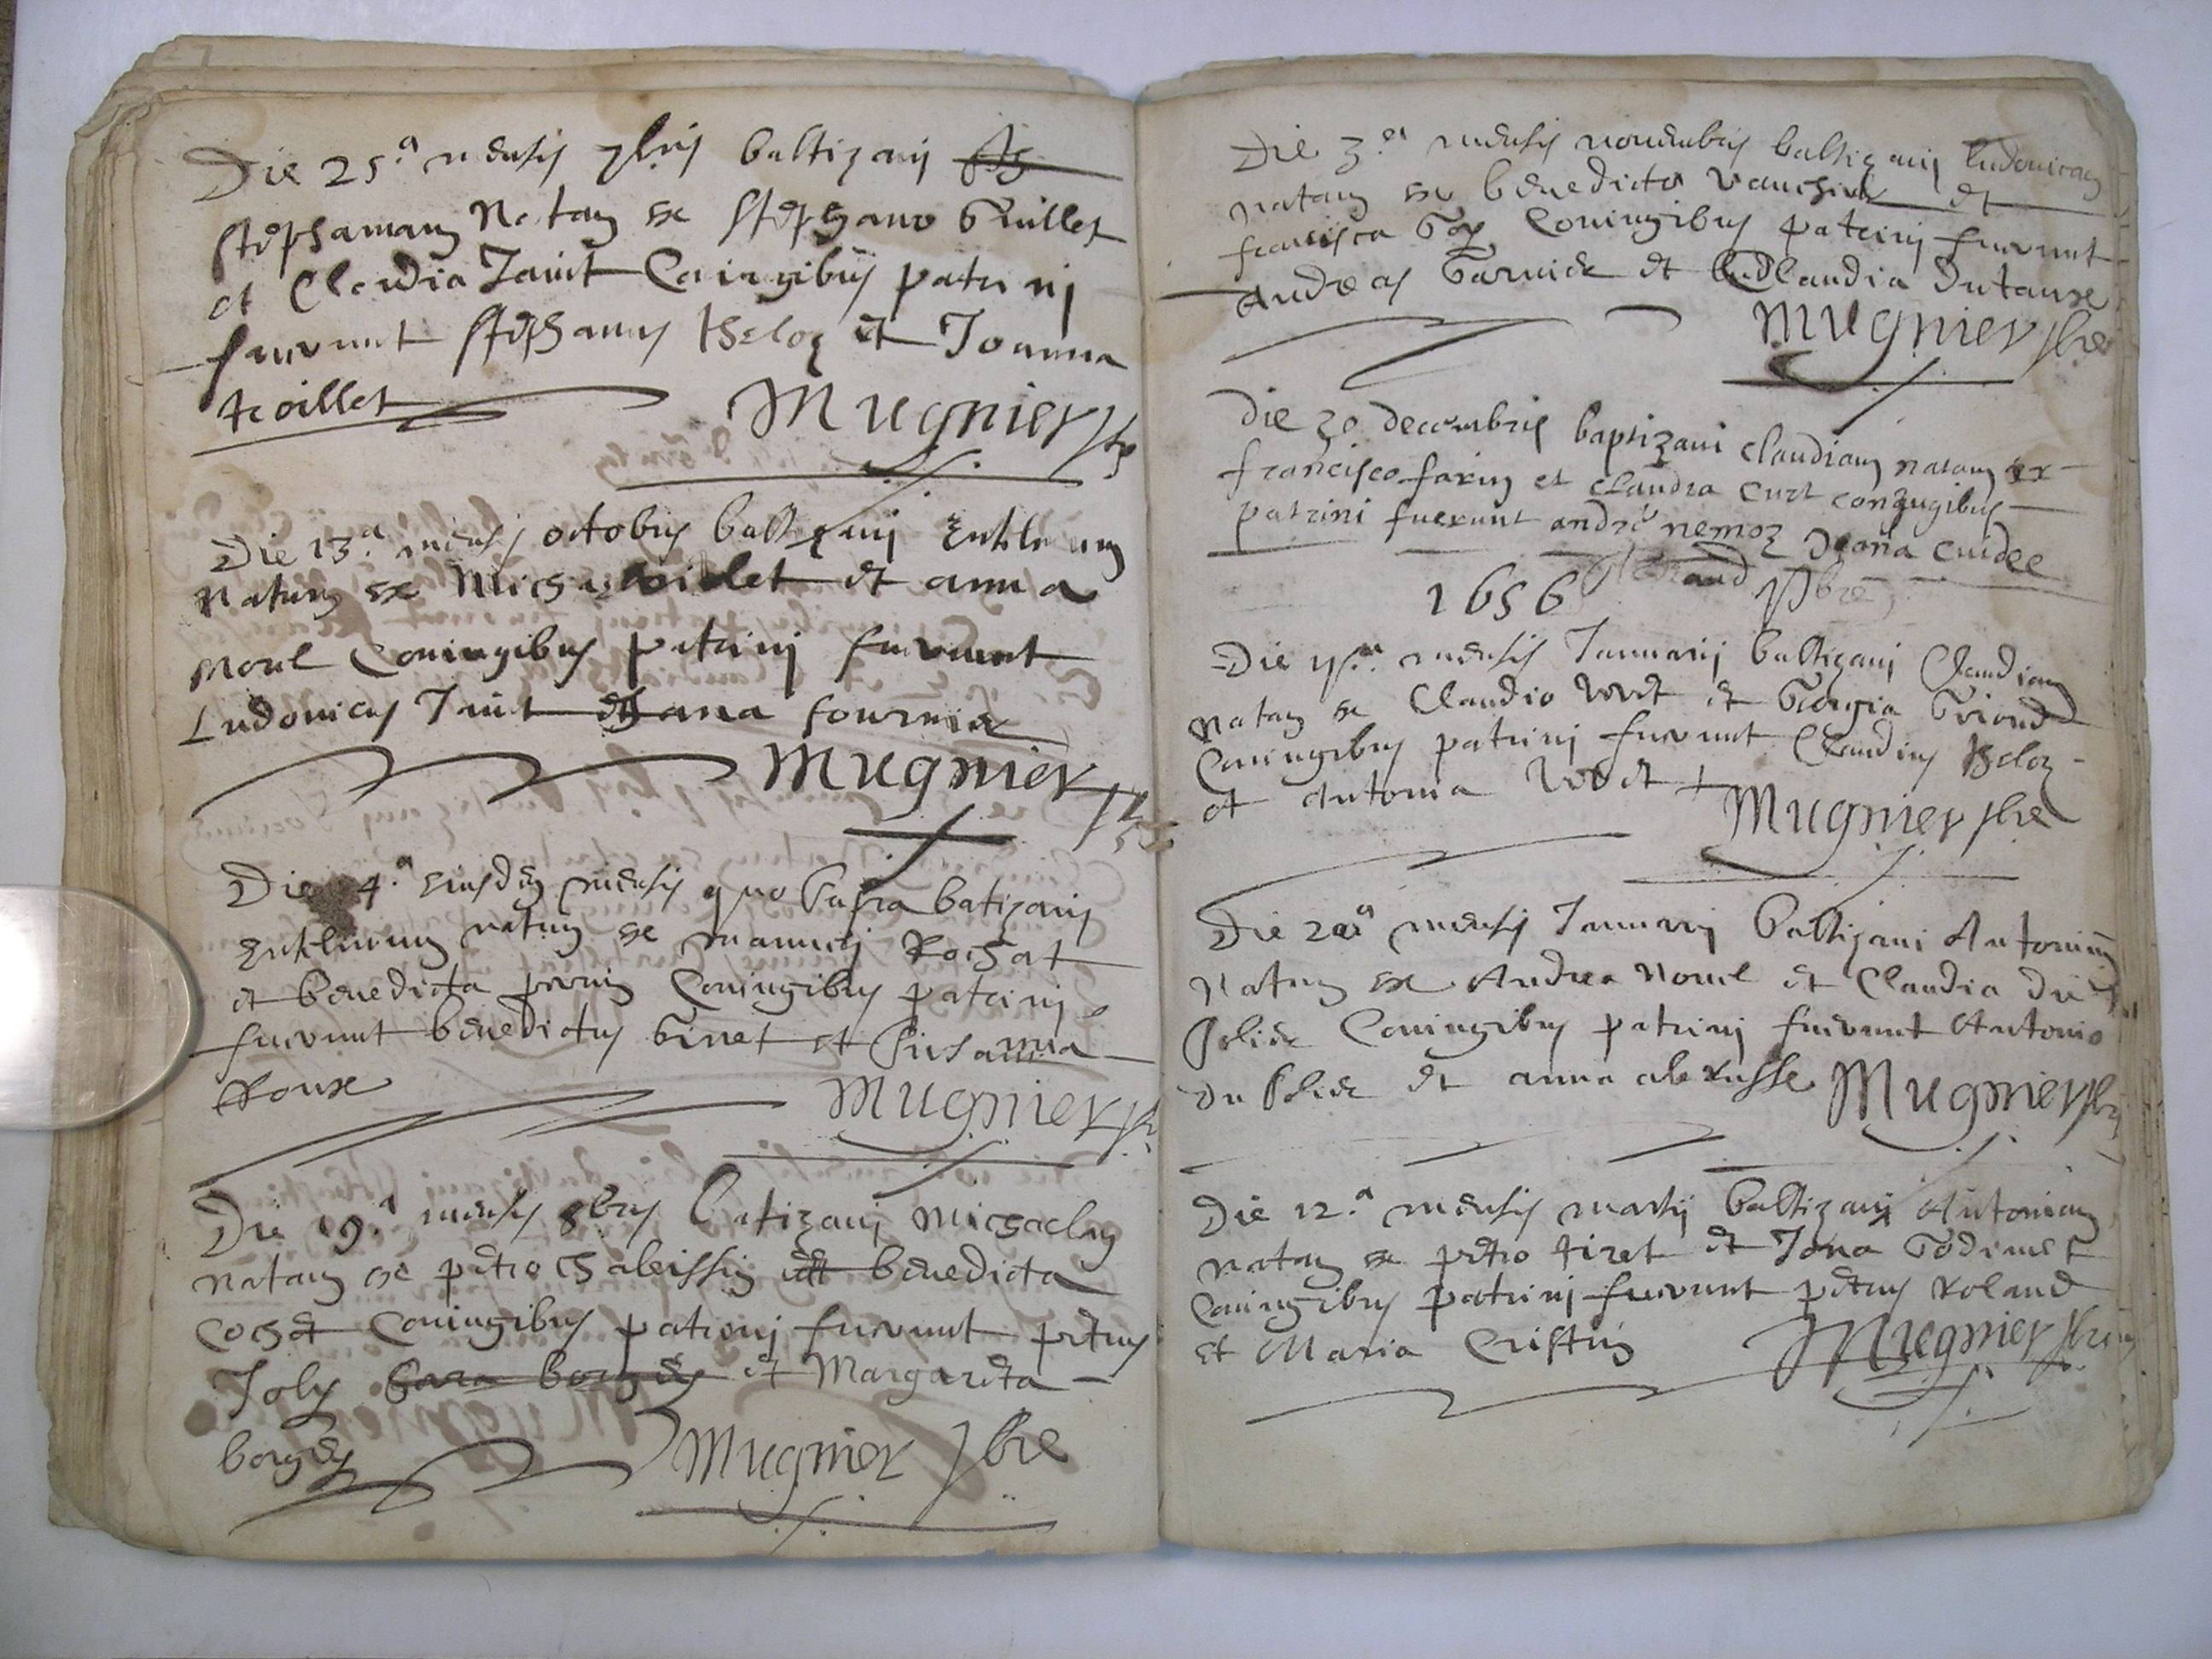 Die 25.a mensis 7bris baltizavi
stephanam natam ex stephano Guillet
et Claudia Janit Coniugibus patrini
fuerunt stephanus Beloz et Joanna
troillet
Mugnier
Die 13.a mensis octobris baltizavi
natum ex Michaele violet et anna
morel Coniugibus patrini fuerunt
Ludovicus Janit et Jana fournier
Mugnier
Die 4.a eiusdem mensis quo supra batizavi
natum ex Rochat
et benedicta Coniugibus patrini
fuerunt benedictus Ginet et Susanna
Roux
Mugnier
Die 19.a mensis 8bris batizavi Michaelem
natam ex petro Chaleissin et benedicta
Cochet Coniugibus patrini fuerunt petrus
Joly et Margareta
borgey
Mugnier pbre
Die 3.a mensis novembris baltizavi ludovicam
natam ex benedicto vauchier et
francisca Gay Coniugibus patrini fuerunt
Andreas Garnier et Claudia Dutaux
Mugnier pbre
Die 30 decembris baptizavi claudiam natam ex
francisco farin et claudia curt coniugibus
patrini fuerunt andre nemoz Joana
1656 pbre
Die mensis Januarii baltizavi Claudiam
natam ex Claudio et Georgia Griond
Coniugibus patrini fuerunt Claudius Beloz
et Antonia
Mugnier pbre
Die mensis Januarii baltizavi Antonium
Natum ex Andrea morel et Claudia du
Solier Coniugibus patrini fuerunt Antonio
du Solier et anna
Mugnier pbre
Die 12.a mensis martii baltizavi Antoniam
natam ex petro tiret et Jana Godimet
Coniugibus patrini fuerunt petrus Roland
et Maria Cristin
Mugnier pbre